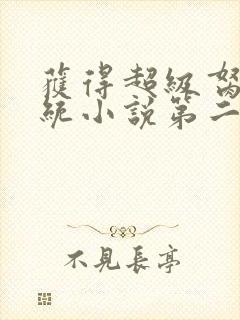 獲得超級
統小說第二
不見長亭